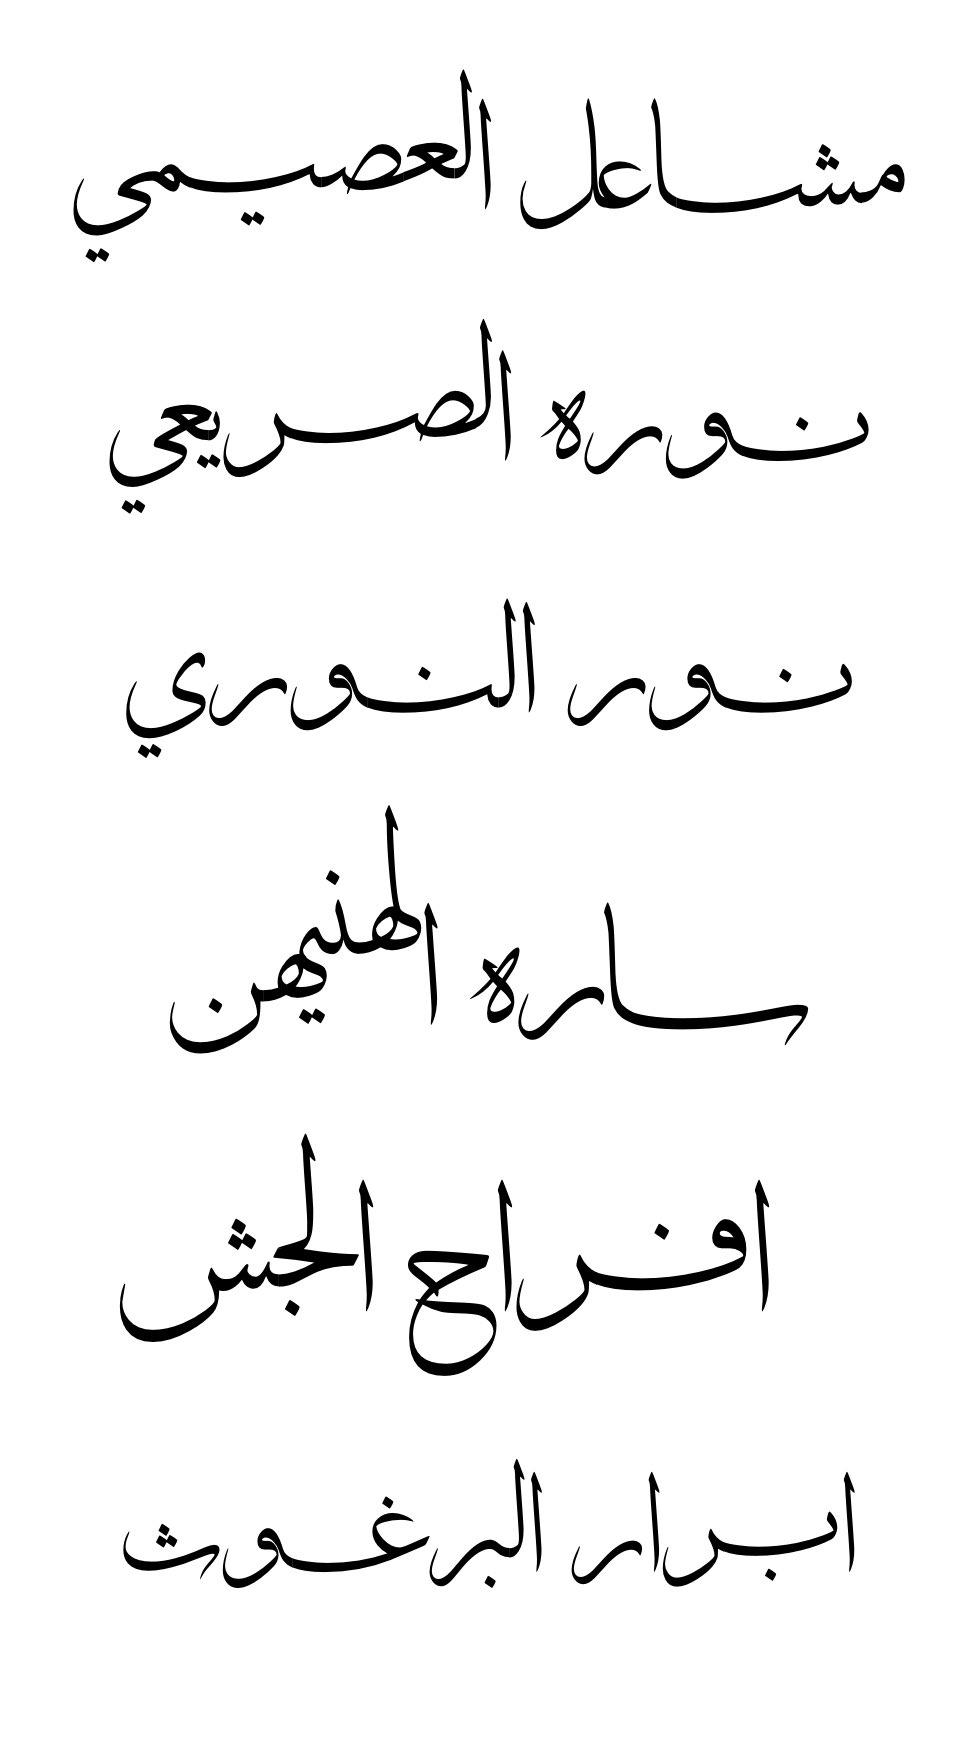 مشاعل العصيمي
نوره الصريعي
نور النوري
ساره الهنيهن
افراح الجش
ابرار البرغوث